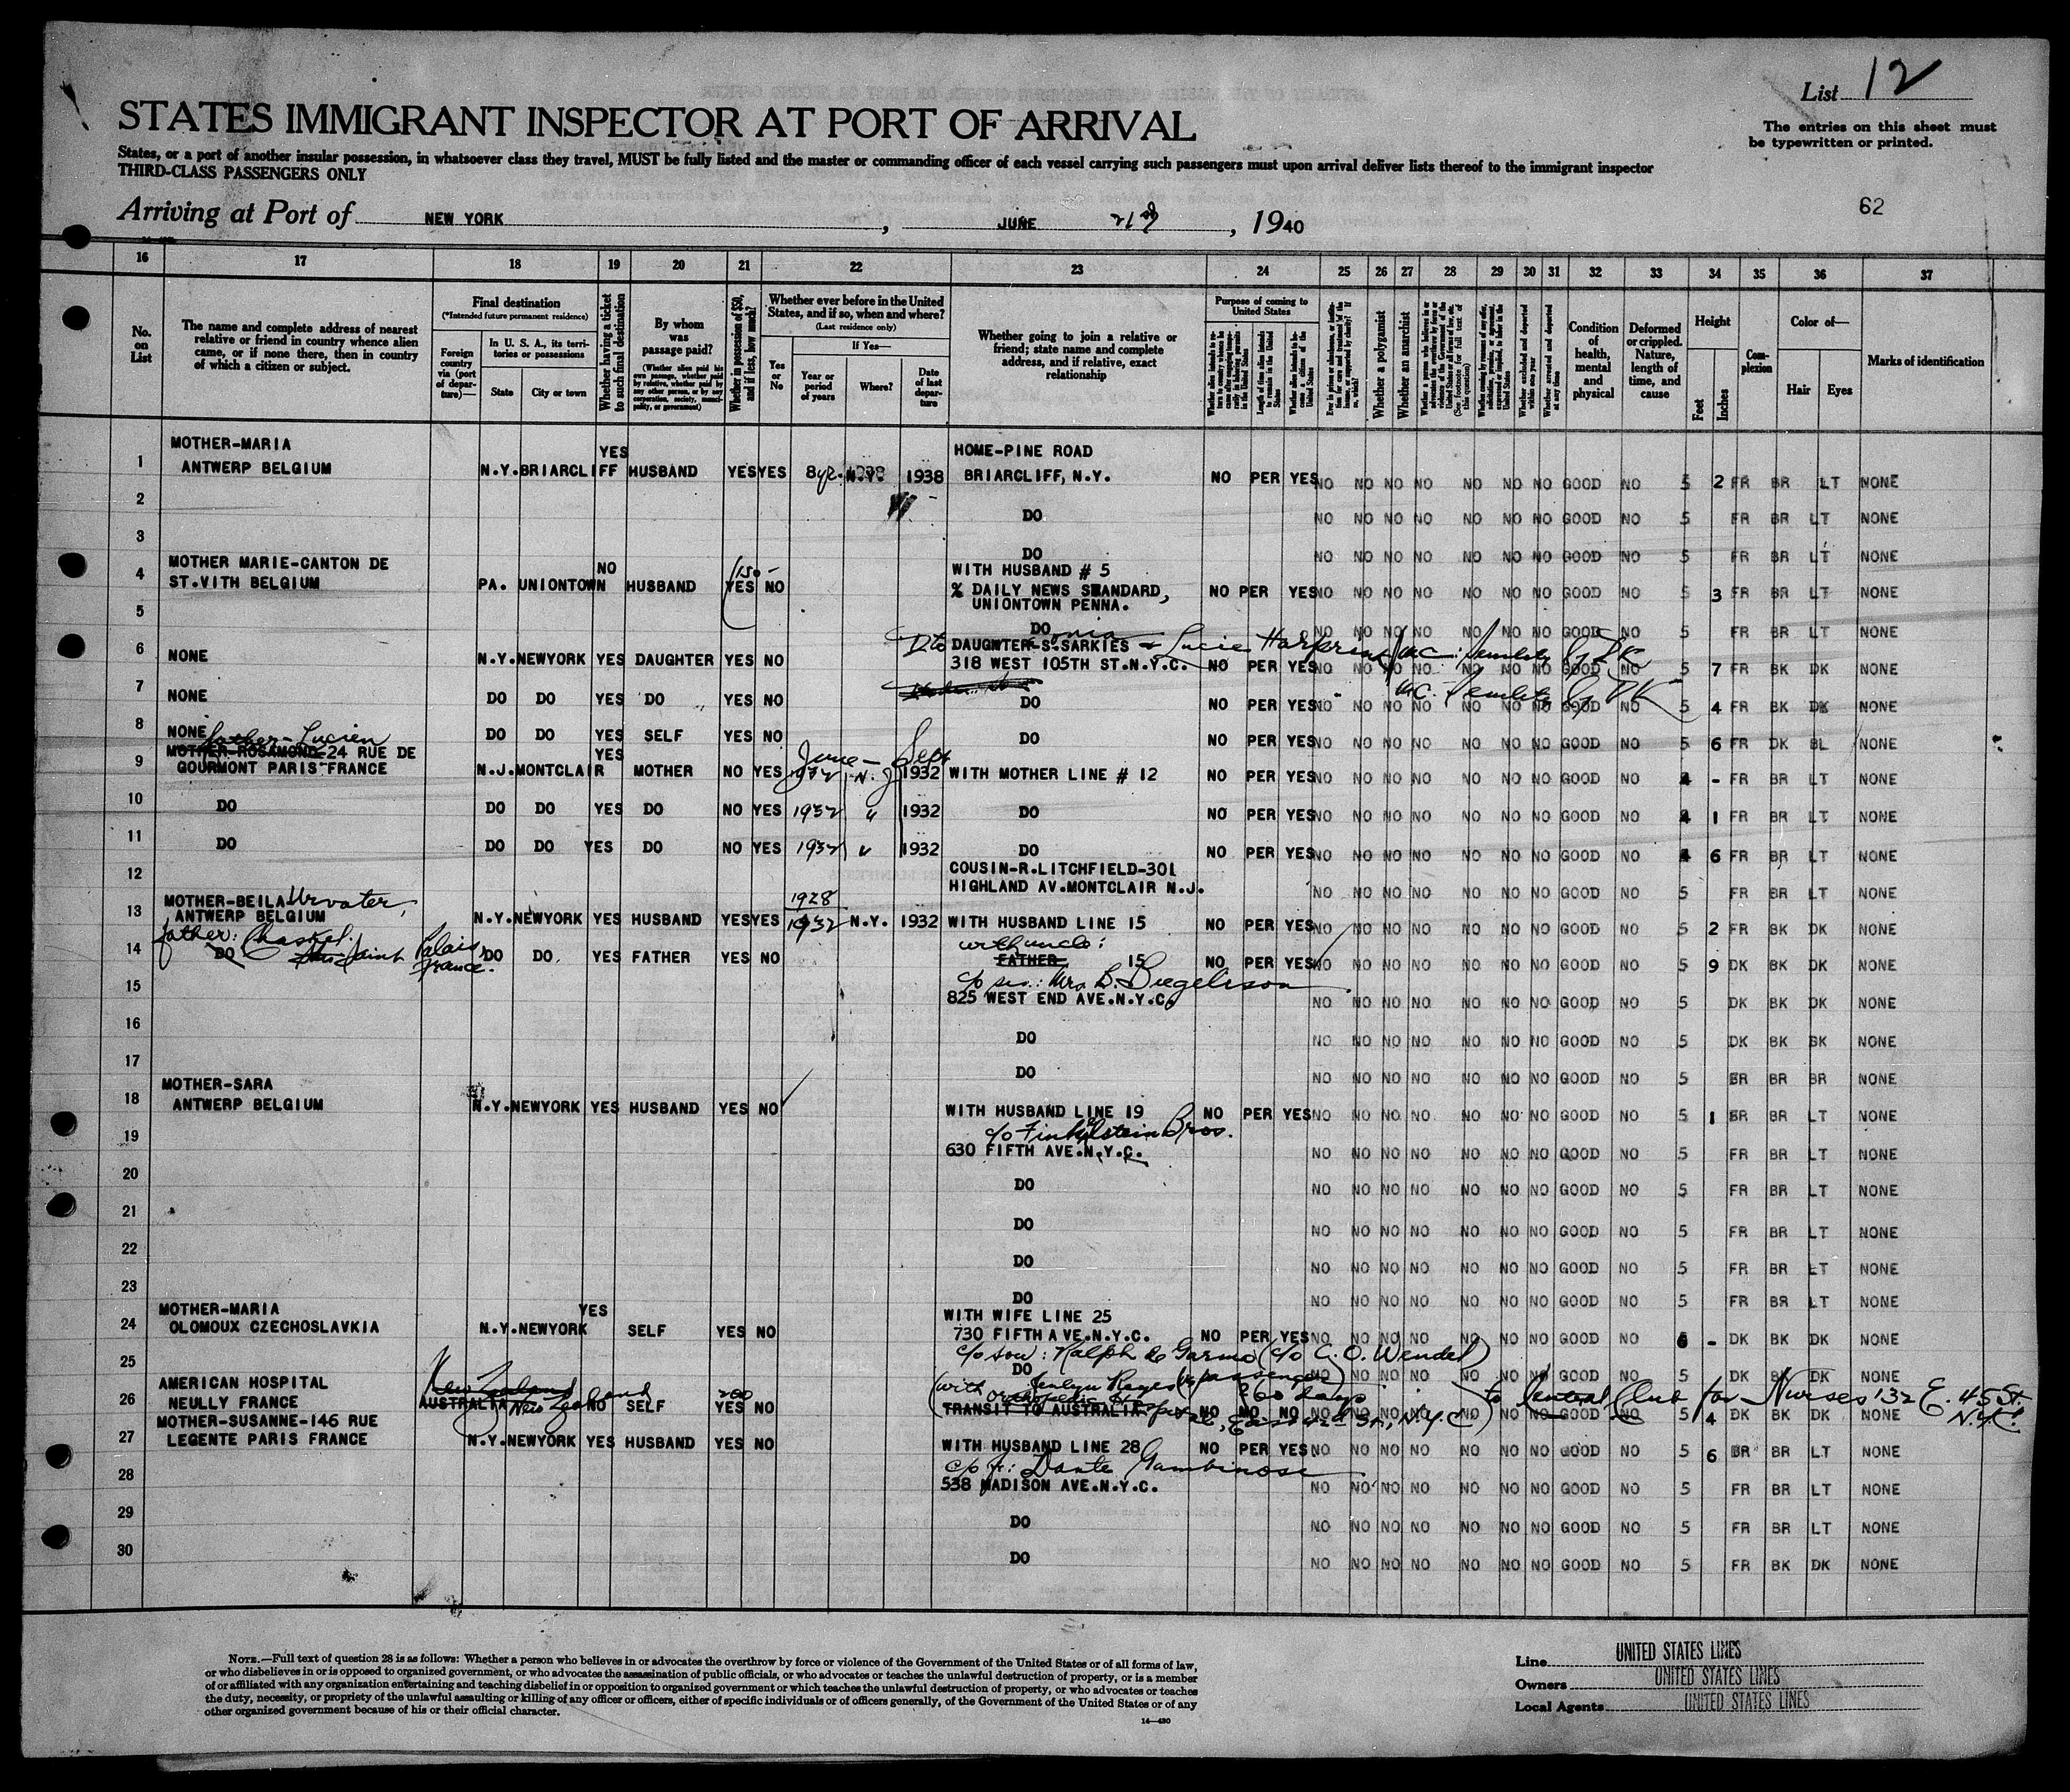 List 12
STATES IMMIGRANT INSPECTOR AT PORT OF ARRIVAL
The entries on this sheet must
be typewritten or printed.
States, or a port of another insular possession, in whatsoever class they travel, MUST be fully listed and the master or commanding officer of each vessel carrying such passengers must upon arrival deliver lists thereof to the immigrant inspector
THIRD-CLASS PASSENGERS ONLY
62
Arriving at Port of NEW YORK, JUNE 21, 1940
16 17 18 19 20 21 22 23 24 25 26 27 28 29 30 31 32 33 34 35 36 37
No. on List
The name and complete address of nearest relative or friend in country whence alien came, or if none there, then in country of which a citizen or subject.
Final destination
(*Intended future permanent residence)
Foreign country via (port of departure)—
In U. S. A., its territories or possessions
State City or town
Whether having a ticket to such final destination
By whom was passage paid?
(Whether alien paid his own passage, whether paid by relative, whether paid by any other person, or by any corporation, society, municipality, or government)
Whether in possession of $50, and if less, how much?
Whether ever before in the United States, and if so, when and where?
(Last residence only)
Yes or No
If Yes—
Year or period of years
Where?
Date of last departure
Whether going to join a relative or friend; state name and complete address, and if relative, exact relationship
Purpose of coming to United States
Length of time alien intends to remain in the United States
Whether alien intends to become a citizen of the United States
Whether a polygamist
Whether an anarchist
Whether excluded and deported within one year
Whether arrested and deported at any time
Condition of health, mental and physical
Deformed or crippled. Nature, length of time, and cause
Height
Feet Inches
Complexion
Color of—
Hair Eyes
Marks of identification
MOTHER-MARIA YES HOME-PINE ROAD
1 ANTWERP BELGIUM N.Y. BRIARCLIFF HUSBAND YES YES 8 yr. N.Y. 1938 BRIARCLIFF, N.Y. NO PER YES NO NO NO NO NO NO NO GOOD NO 5 2 FR BR LT NONE
2 DO NO NO NO NO NO NO NO GOOD NO 5 FR BR LT NONE
3 DO NO NO NO NO NO NO NO GOOD NO 5 FR BR LT NONE
MOTHER MARIE-CANTON DE NO 150- WITH HUSBAND # 5
4 ST.VITH BELGIUM PA. UNIONTOWN HUSBAND YES NO % DAILY NEWS STANDARD, NO PER YES NO NO NO NO NO NO NO GOOD NO 5 3 FR BR LT NONE
UNIONTOWN PENNA.
5 DO NO NO NO NO NO NO NO GOOD NO 5 FR BR LT NONE
DAUGWTER-S.SARKIES
6 NONE N.Y. NEWYORK YES DAUGHTER YES NO 318 WEST 105TH ST.N.Y.C. NO PER YES NO NO NO NO NO NO NO GOOD NO 5 7 FR BK DK NONE
7 NONE DO DO YES DO YES NO DO NO PER YES NO NO NO NO NO NO NO GOOD NO 5 4 FR BK DK NONE
8 NONE DO DO YES SELF YES NO DO NO PER YES NO NO NO NO NO NO NO GOOD NO 5 6 FR DK BL NONE
father-Lucien
MOTHER-ROSAMOND-24 RUE DE YES June - Sept
9 GOURMONT PARIS FRANCE N.J. MONTCLAIR MOTHER NO YES 1932 N.J. 1932 WITH MOTHER LINE # 12 NO PER YES NO NO NO NO NO NO NO GOOD NO 4 - FR BR LT NONE
10 DO DO DO YES DO NO YES 1932 " 1932 DO NO PER YES NO NO NO NO NO NO NO GOOD NO 4 1 FR BR LT NONE
11 DO DO DO YES DO NO YES 1932 " 1932 DO NO PER YES NO NO NO NO NO NO NO GOOD NO 4 6 FR BR LT NONE
COUSIN-R.LITCHFIELD-301
12 HIGHLAND AV.MONTCLAIR N.J. NO NO NO NO NO NO NO GOOD NO 5 FR BR LT NONE
MOTHER-BEILA Urvater, 1928
13 ANTWERP BELGIUM N.Y. NEWYORK YES HUSBAND YES YES 1932 N.Y. 1932 WITH HUSBAND LINE 15 NO PER YES NO NO NO NO NO NO NO GOOD NO 5 2 FR BK DK NONE
father: Chaskel Saint Palais, France. with uncle:
14 DO DO DO. YES FATHER YES NO FATHER 15 NO PER YES NO NO NO NO NO NO NO GOOD NO 5 9 DK BK DK NONE
c/o Mrs. B.
15 825 WEST END AVE.N.Y.C. NO NO NO NO NO NO NO GOOD NO 5 DK BK DK NONE
16 DO NO NO NO NO NO NO NO GOOD NO 5 DK BK BK NONE
17 DO NO NO NO NO NO NO NO GOOD NO 5 BR BR BR NONE
MOTHER-SARA
18 ANTWERP BELGIUM N.Y. NEWYORK YES HUSBAND YES NO WITH HUSBAND LINE 19 NO PER YES NO NO NO NO NO NO NO GOOD NO 5 1 BR BR LT NONE
c/o Finkelstein Bros.
19 630 FIFTH AVE.N.Y.C. NO NO NO NO NO NO NO GOOD NO 5 FR BR LT NONE
20 DO NO NO NO NO NO NO NO GOOD NO 5 FR BR LT NONE
21 DO NO NO NO NO NO NO NO GOOD NO 5 FR BR LT NONE
22 DO NO NO NO NO NO NO NO GOOD NO 5 FR BR LT NONE
23 DO NO NO NO NO NO NO NO GOOD NO 5 FR BR LT NONE
MOTHER-MARIA YES WITH WIFE LINE 25
24 OLOMOUX CZECHOSLAVKIA N.Y. NEWYORK SELF YES NO 730 FIFTH AVE.N.Y.C. NO PER YES NO NO NO NO NO NO NO GOOD NO 6 - DK BK DK NONE
c/o son: Ralph de Garmo (c/o C. O. Wendel)
25 DO NO NO NO NO NO NO NO GOOD NO 5 DK BK DK NONE
AMERICAN HOSPITAL New Zealand 200 (with passenger) 60 days to Central Club for Nurses 132 E. 45 St. N.Y.C.
26 NEULLY FRANCE AUSTRALIA New Zealand NO SELF YES NO TRANSIT TO AUSTRALIA NO NO NO NO NO NO NO NO NO NO GOOD NO 5 4 DK BK DK NONE
MOTHER-SUSANNE-146 RUE
27 LEGENTE PARIS FRANCE N.Y. NEWYORK YES HUSBAND YES NO WITH HUSBAND LINE 28 NO PER YES NO NO NO NO NO NO NO GOOD NO 5 6 BR BR LT NONE
c/o fr: Dante
28 538 MADISON AVE.N.Y.C. NO NO NO NO NO NO NO GOOD NO 5 FR BR LT NONE
29 DO NO NO NO NO NO NO NO GOOD NO 5 FR BR LT NONE
30 DO NO NO NO NO NO NO NO GOOD NO 5 FR BK DK NONE
NOTE.—Full text of question 28 is as follows: Whether a person who believes in or advocates the overthrow by force or violence of the Government of the United States or of all forms of law,
or who disbelieves in or is opposed to organized government, or who advocates the assassination of public officials, or who advocates or teaches the unlawful destruction of property, or is a member
of or affiliated with any organization entertaining and teaching disbelief in or opposition to organized government or which teaches the unlawful destruction of property, or who advocates or teaches
the duty, necessity, or propriety of the unlawful assaulting or killing of any officer or officers, either of specific individuals or of officers generally, of the Government of the United States or of any
other organized government because of his or their official character.
14—430
Line UNITED STATES LINES
Owners UNITED STATES LINES
Local Agents UNITED STATES LINES